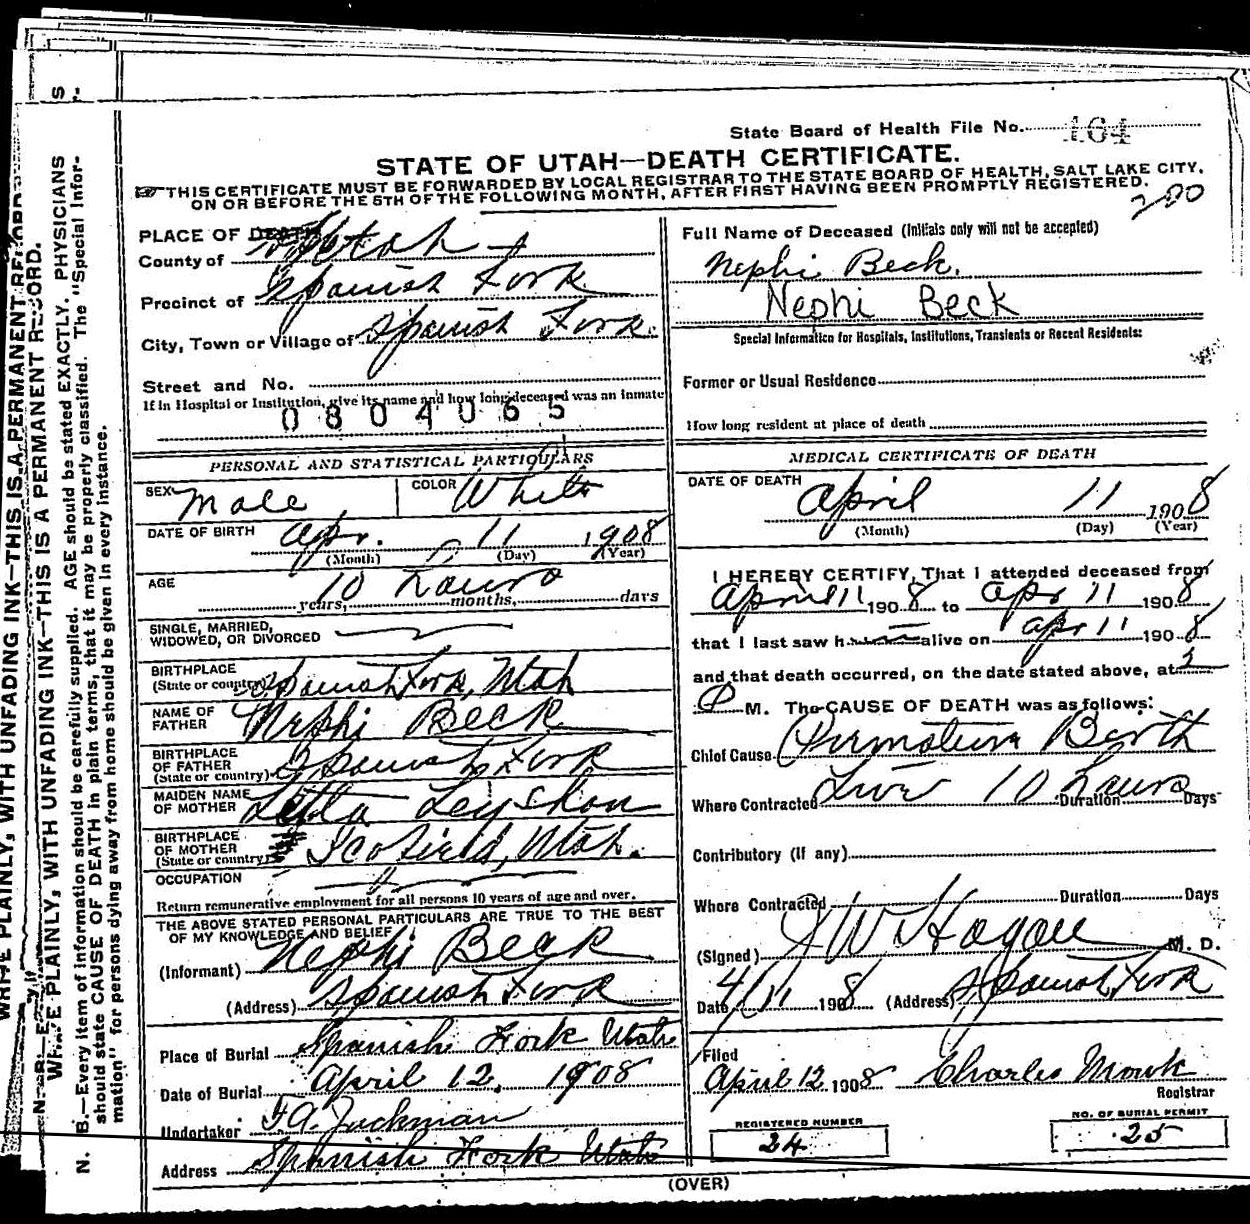 State Board of Health File No. 164
STATE OF UTAH—DEATH CERTIFICATE.
THIS CERTIFICATE MUST BE FORWARDED BY LOCAL REGISTRAR TO THE STATE BOARD OF HEALTH, SALT LAKE CITY,
ON OR BEFORE THE 5TH OF THE FOLLOWING MONTH, AFTER FIRST HAVING BEEN PROMPTLY REGISTERED.
200
PLACE OF DEATH
County of Utah
Precinct of Spanish Fork
City, Town or Village of Spanish Fork
Street and No.
If in Hospital or Institution, give its name and how long deceased was an inmate
0804065
PERSONAL AND STATISTICAL PARTICULARS
SEX Male COLOR White
DATE OF BIRTH Apr. 11 1908
(Month) (Day) (Year)
AGE 10 hours
years, months, days
SINGLE, MARRIED,
WIDOWED, OR DIVORCED
BIRTHPLACE
(State or country) Spanish Fork, Utah
NAME OF
FATHER Nephi Beck
BIRTHPLACE
OF FATHER
(State or country) Spanish Fork
MAIDEN NAME
OF MOTHER Letta Leyshon
BIRTHPLACE
OF MOTHER
(State or country) Scofield, Utah.
OCCUPATION
Return remunerative employment for all persons 10 years of age and over.
THE ABOVE STATED PERSONAL PARTICULARS ARE TRUE TO THE BEST
OF MY KNOWLEDGE AND BELIEF
(Informant) Nephi Beck
(Address) Spanish Fork
Place of Burial Spanish Fork Utah
Date of Burial April 12, 1908
Undertaker
Address Spanish Fork Utah
Full Name of Deceased (Initials only will not be accepted)
Nephi Beck.
Nephi Beck
Special Information for Hospitals, Institutions, Transients or Recent Residents:
Former or Usual Residence
How long resident at place of death
MEDICAL CERTIFICATE OF DEATH
DATE OF DEATH
April 11 1908
(Month) (Day) (Year)
I HEREBY CERTIFY, That I attended deceased from
April 11 1908 to Apr 11 1908
that I last saw h alive on Apr 11 1908
and that death occurred, on the date stated above, at 5
P M. The CAUSE OF DEATH was as follows:
Chief Cause Premature Birth
Live 10 hours
Where Contracted Duration Days
Contributory (If any)
Where Contracted Duration Days
(Signed) J W Hagan M. D.
Date 4/11 1908 (Address) Spanish Fork
Filed
April 12 1908 Charles Monk
Registrar
REGISTERED NUMBER
24
NO. OF BURIAL PERMIT
25
(OVER)
WRITE PLAINLY, WITH UNFADING INK—THIS IS A PERMANENT RECORD.
N. B.—Every item of information should be carefully supplied. AGE should be stated EXACTLY. PHYSICIANS
should state CAUSE OF DEATH in plain terms, that it may be properly classified. The "Special Infor-
mation" for persons dying away from home should be given in every instance.